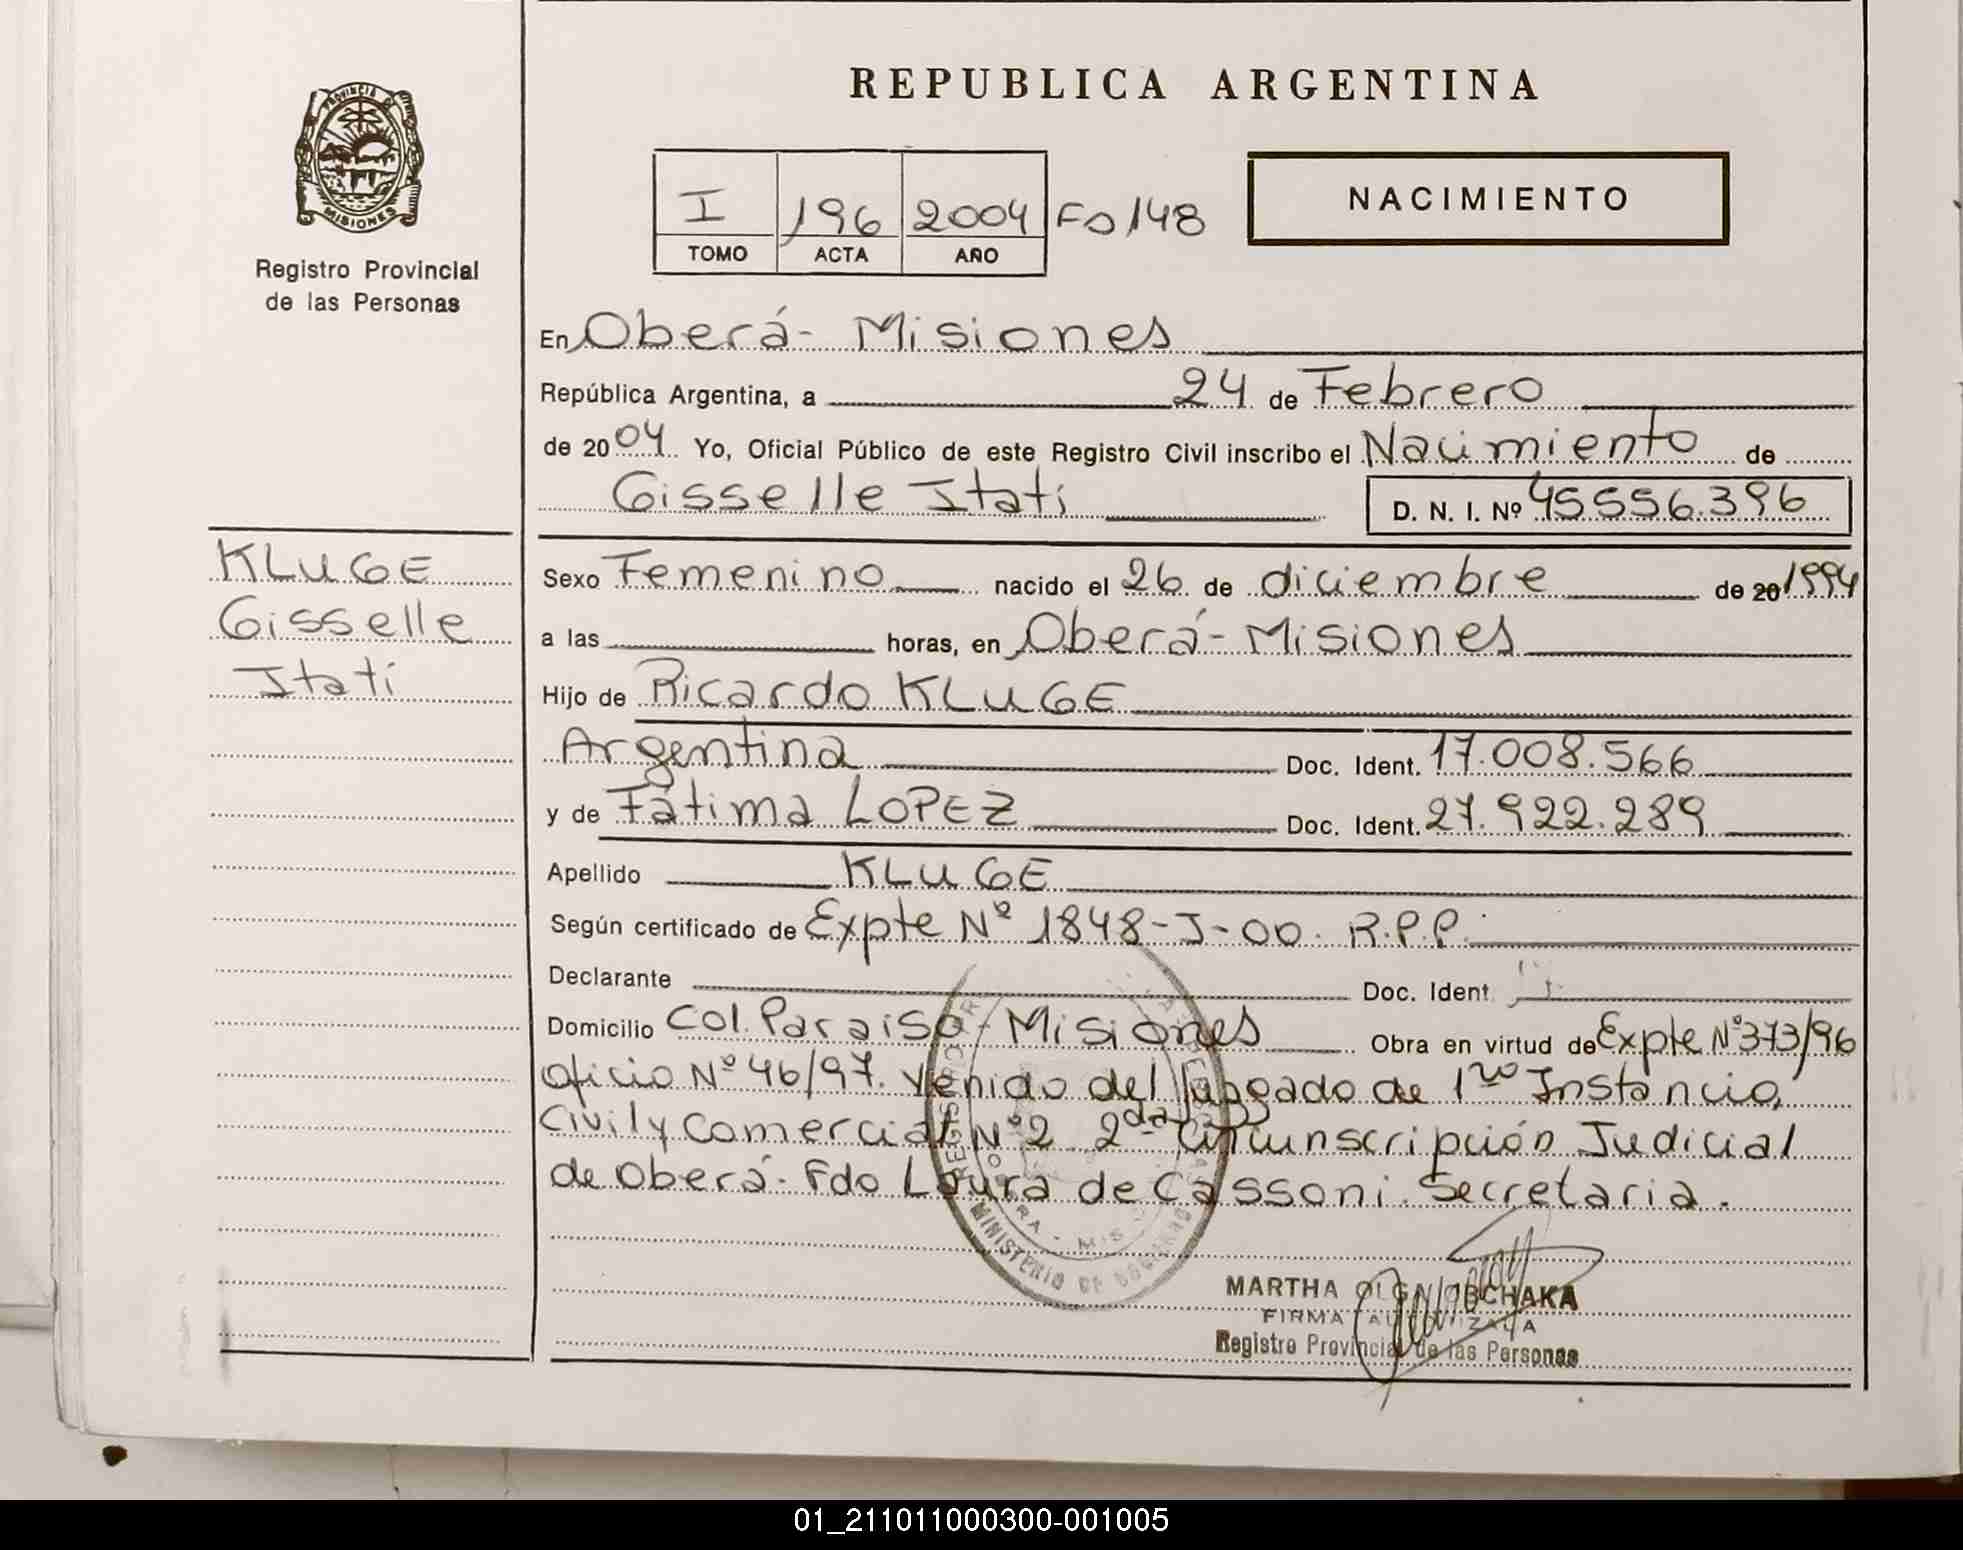 REPUBLICA ARGENTINA
PROVINCIA DE
MISIONES
Registro Provincial
de las Personas
I 196 2004 Fo 148
TOMO ACTA AÑO
NACIMIENTO
En Oberá - Misiones
República Argentina, a 24 de Febrero
de 2004 Yo, Oficial Público de este Registro Civil inscribo el Nacimiento de
Gisselle Itatí
D. N. I. Nº 45556.396
KLUGE
Gisselle
Itatí
Sexo Femenino nacido el 26 de diciembre de 20 1994
a las horas, en Oberá - Misiones
Hijo de Ricardo KLUGE
Argentina Doc. Ident. 17.008.566
y de Fátima LOPEZ Doc. Ident. 27.922.289
Apellido KLUGE
Según certificado de Expte Nº 1848-J-00. R.P.P.
Declarante Doc. Ident.
Domicilio Col. Paraiso - Misiones Obra en virtud de Expte Nº 373/96
Oficio Nº 46/97. Venido del Juzgado de 1ra Instancia,
Civil y Comercial Nº 2 2da Circunscripción Judicial
de Oberá. Fdo Laura de Cassoni. Secretaria.
MINISTERIO DE GOBIERNO
MARTHA
FIRMA AUTORIZADA
Registro Provincial de las Personas
01_211011000300-001005